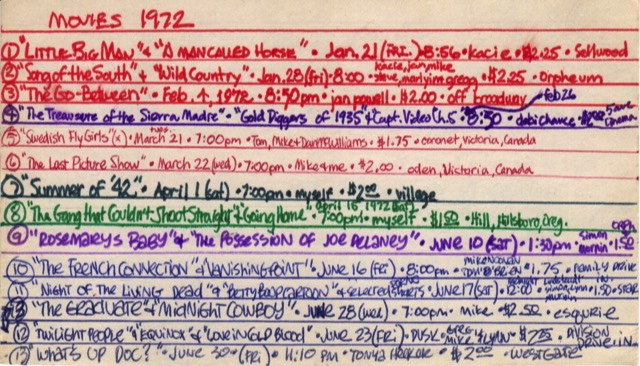 MOVIES 1972
① "LITTLE BIG MAN" & "A MAN CALLED HORSE" • Jan. 21 (FRI.) • 8:56 • Kacie • $2.25 • Sellwood
kacie, jan, mike
② "Song of the South" & "Wild Country" • Jan. 28 (Fri) • 8:00 • steve, marlyinn gregg • $2.25 • Orpheum
③ "The Go-Between" • Feb. 4, 1972 • 8:50pm • jan powell • $2.00 • off broadway
feb 26
④ "The Treasure of the Sierra Madre" • "Gold Diggers of 1935" & Capt. Video Ch. 5 • 8:30 • debi chance • cinema
⑤ "Swedish Fly Girls" (x) • March 21 • 7:00pm • Tom, Mike & Dan McWilliams • $1.75 • coronet, Victoria, Canada
⑥ "The Last Picture Show" • March 22 (wed) • 7:00pm • Mike & me • $2.00 • oden, Victoria, Canada
⑦ "Summer of '42" • April 1 (Sat) • 7:00pm • myself • $2.00 • village
⑧ "The Gang that Couldn't Shoot Straight" & "Going Home" • April 15 1972 (Sat) • 7:00pm • myself • $1.50 • Hill, Hillsboro, Oreg.
⑨ "ROSEMARY'S BABY" & "THE POSSESSION OF JOE DELANEY" • JUNE 10 (SAT) • 1:30pm • simon • 1.50
⑩ "THE FRENCH CONNECTION" & "VANISHING POINT" • JUNE 16 (FRI) • 8:00pm • TOM O'BRIEN • $1.75 • family drive
⑪ "NIGHT OF THE LIVING DEAD" & "BETTY BOOP CARTOON" & SELECTED SHORTS • JUNE 17 (SAT) • 12:00 • 1.50
"THE GRADUATE" & "MIDNIGHT COWBOY" • JUNE 28 (wed) • 7:00pm • MIKE • $2.50 • esquire
⑫ "TWILIGHT PEOPLE" & "EQUINOX" & "LOVE IN COLD BLOOD" • JUNE 23 (FRI) • DUSK • GREG MIKE & LYNN • DIVISION DRIVE-IN
⑬ "WHAT'S UP DOC?" • JUNE 30 • (FRI) • 11:10 PM • TONYA • $2.00 • WESTGATE